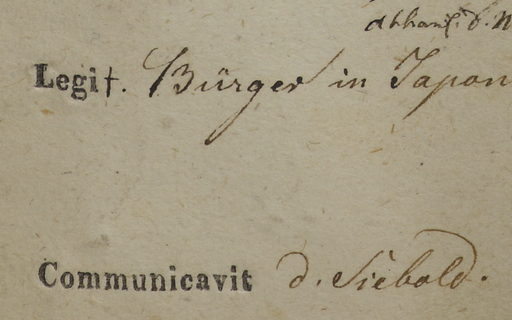 Abhandl. d.
Legit. Bürger in Japon
Communicavit d. Siebold.